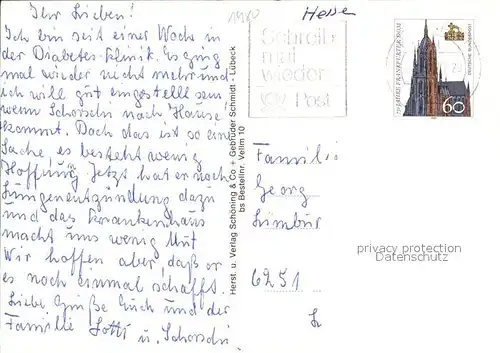 Ihr Lieben!
Ich bin seit einer Woche in
der Diabetes-Klinik. Es ging
mal wieder nicht mehr und
ich will gut eingestellt sein
wenn Schorschi nach Hause
kommt. Doch das ist so eine
Sache, es besteht wenig
Hoffnung. Jetzt hat er noch
Lungenentzündung dazu
und das Krankenhaus
macht uns wenig Mut
Wir hoffen aber, daß er
es noch einmal schafft.
Liebe Grüße Euch und der
Familie Lotti u. Schorschi
Herst. u. Verlag Schöning & Co + Gebrüder Schmidt - Lübeck
bs Bestellnr. Vellm 10
1989
Hessen
Schreib
mal
wieder
Post
DEUTSCHE BUNDESPOST
60
Famili
Georg
Limbur
6251
L
privacy protection
Datenschutz